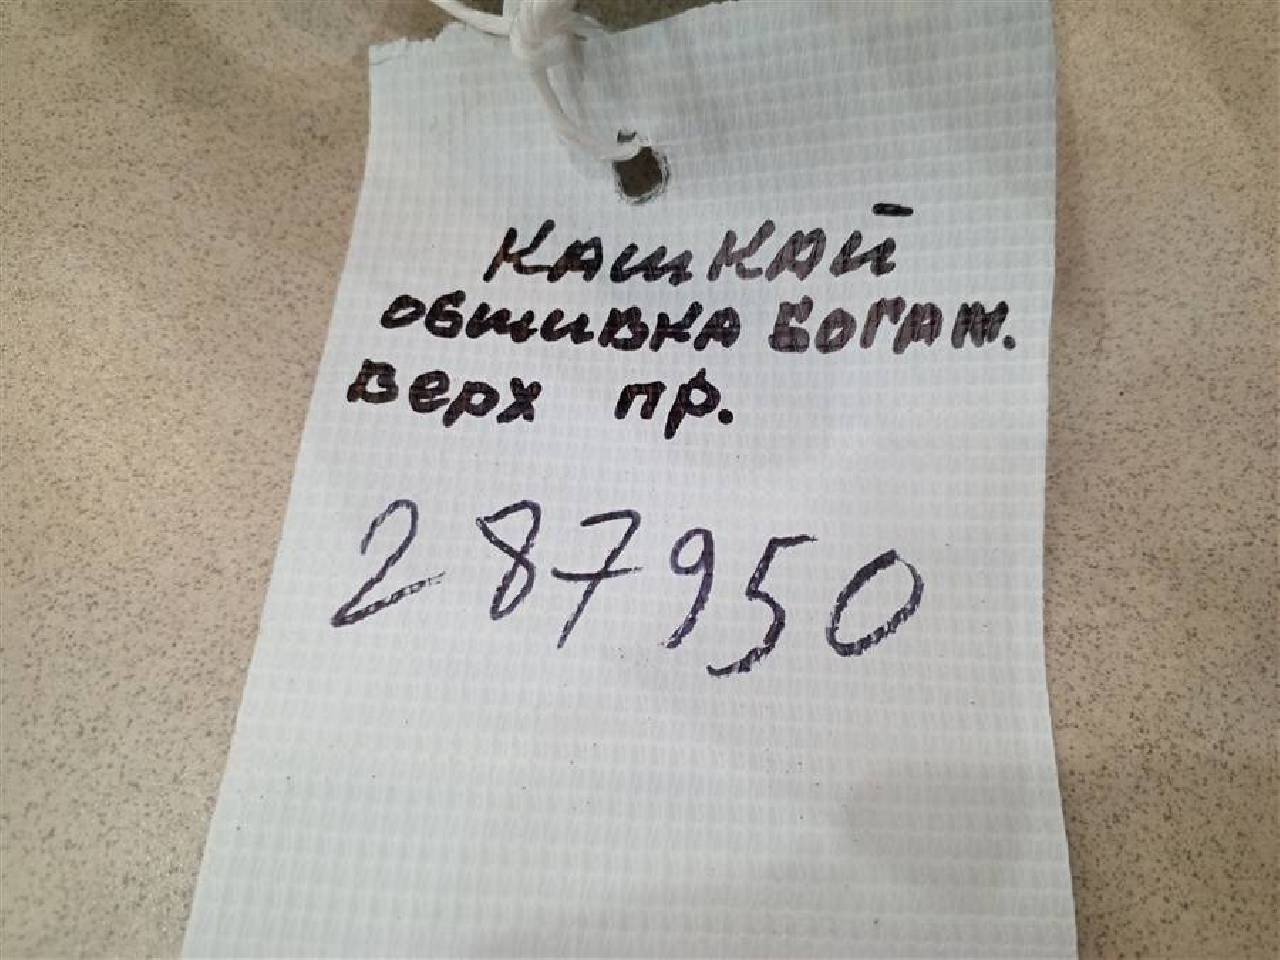 Кашкай
обшивка богаж.
верх пр.
287950